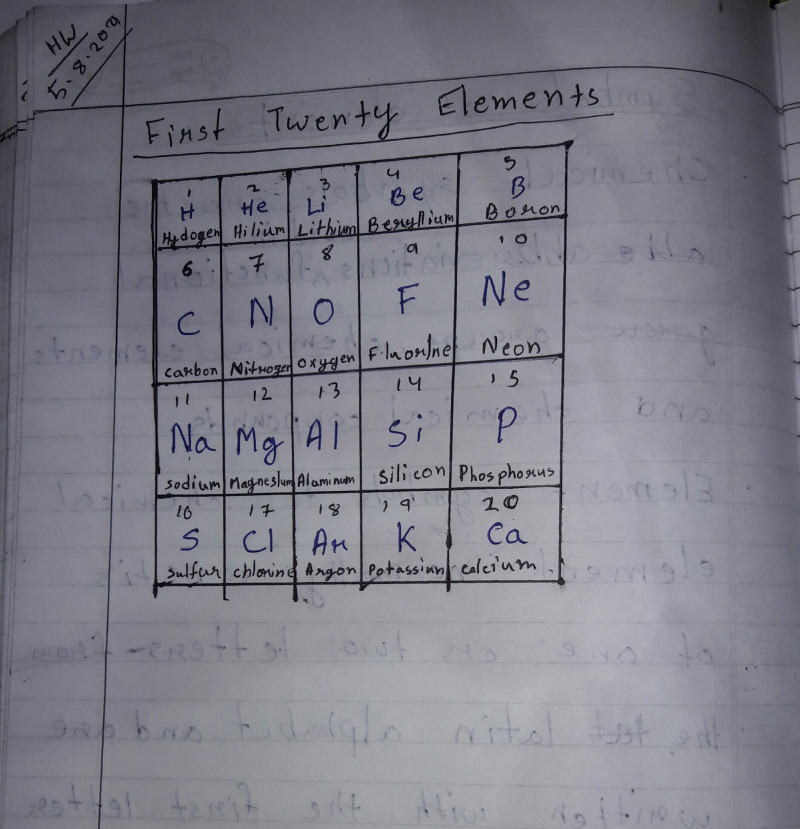 HW
5.8.2021
First Twenty Elements
1 2 3 4 5
H He Li Be B
Hydogen Hilium Lithium Beryllium Boron
6 7 8 9 10
C N O F Ne
carbon Nitrogen oxygen Fluorine Neon
11 12 13 14 15
Na Mg Al Si P
sodium Magnesium Alaminum silicon Phosphorus
16 17 18 19 20
S Cl Ar K Ca
sulfur chlorine Argon Potassium calcium.